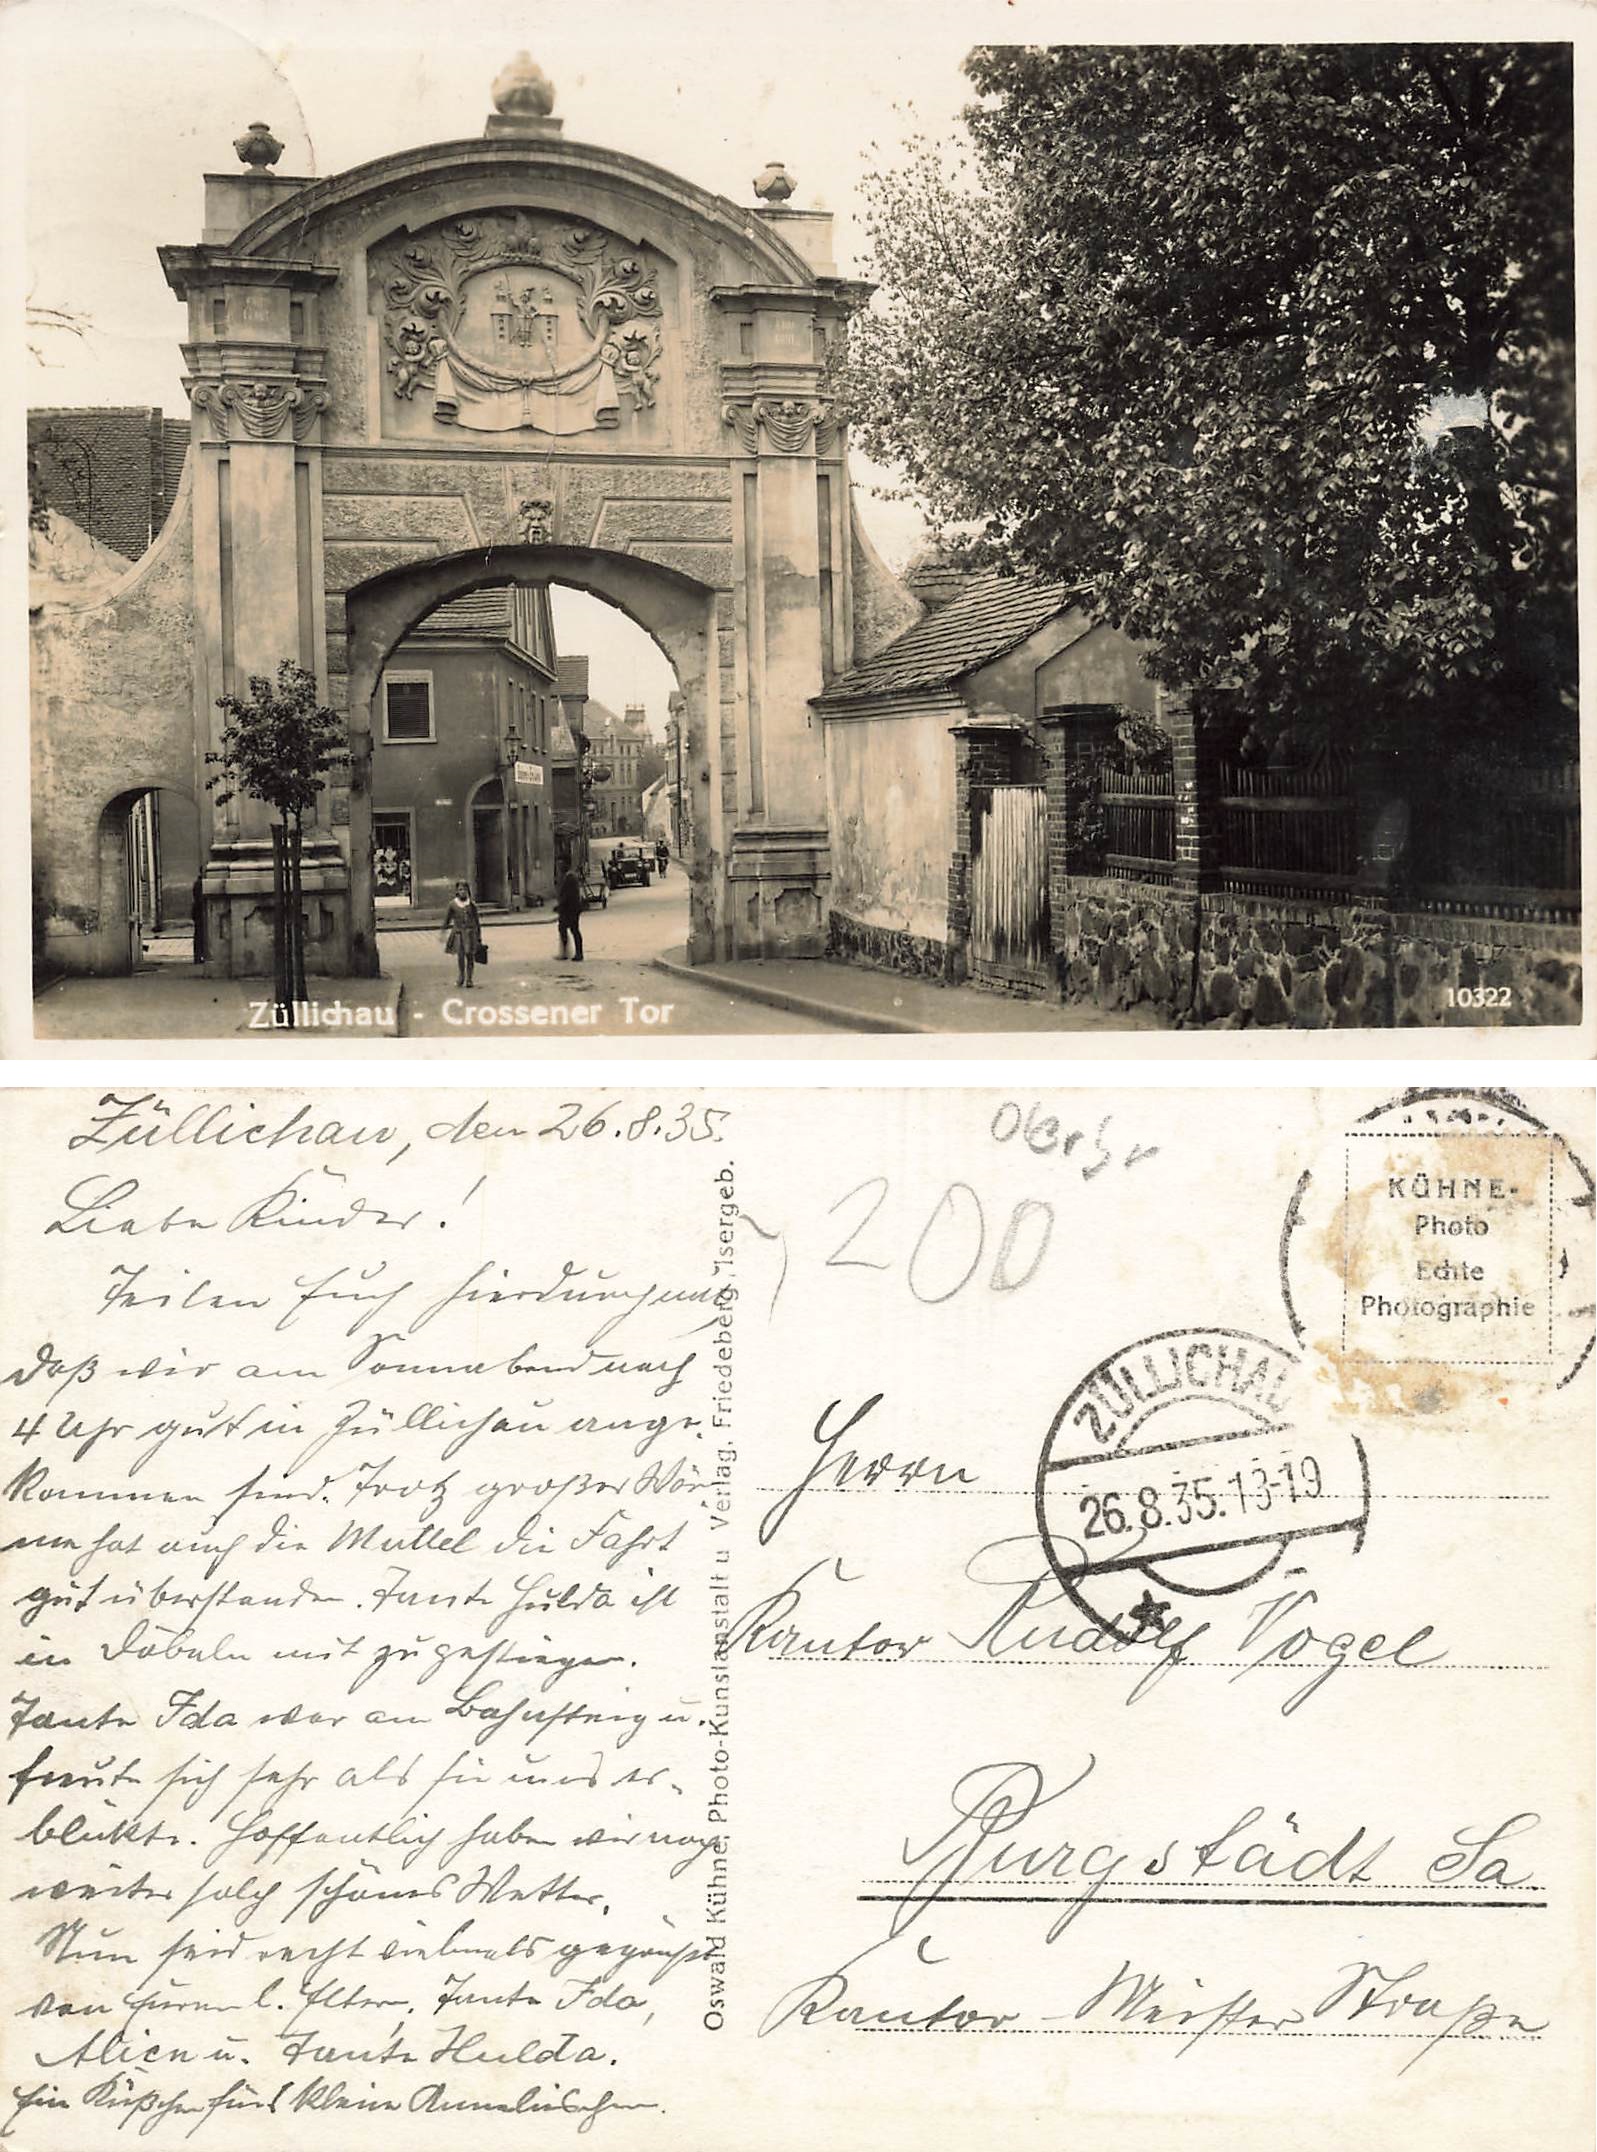 Züllichau - Crossener Tor
10322
Züllichau, den 26.8.35.
Liebe Kinder!
Teilen Euch hierdurch mit,
daß wir am Sonnabend nach
4 Uhr gut in Züllichau ange-
kommen sind. Trotz großer Wär-
me hat auch die Muttel die Fahrt
gut überstanden. Tante Hulda ist
in Döbeln mit zugestiegen.
Tante Ida war am Bahnsteig u.
freute sich sehr als sie uns er-
blickte. Hoffentlich haben wir noch
weiter solch schönes Wetter.
Nun seid recht vielmals gegrüßt
von Euren l. Eltern, Tante Ida,
Alicen u. Tante Hulda.
Ein Küßchen fürs kleine Annelieschen.
Oswald Kühne, Photo-Kunstanstalt u Verlag, Friedeberg, Isergeb.
200
KÜHNE-
Photo
Echte
Photographie
ZÜLLICHAU
26.8.35.13-19
Herrn
Kantor Rudolf Vogel
Burgstädt Sa.
Kantor-Meister Straße